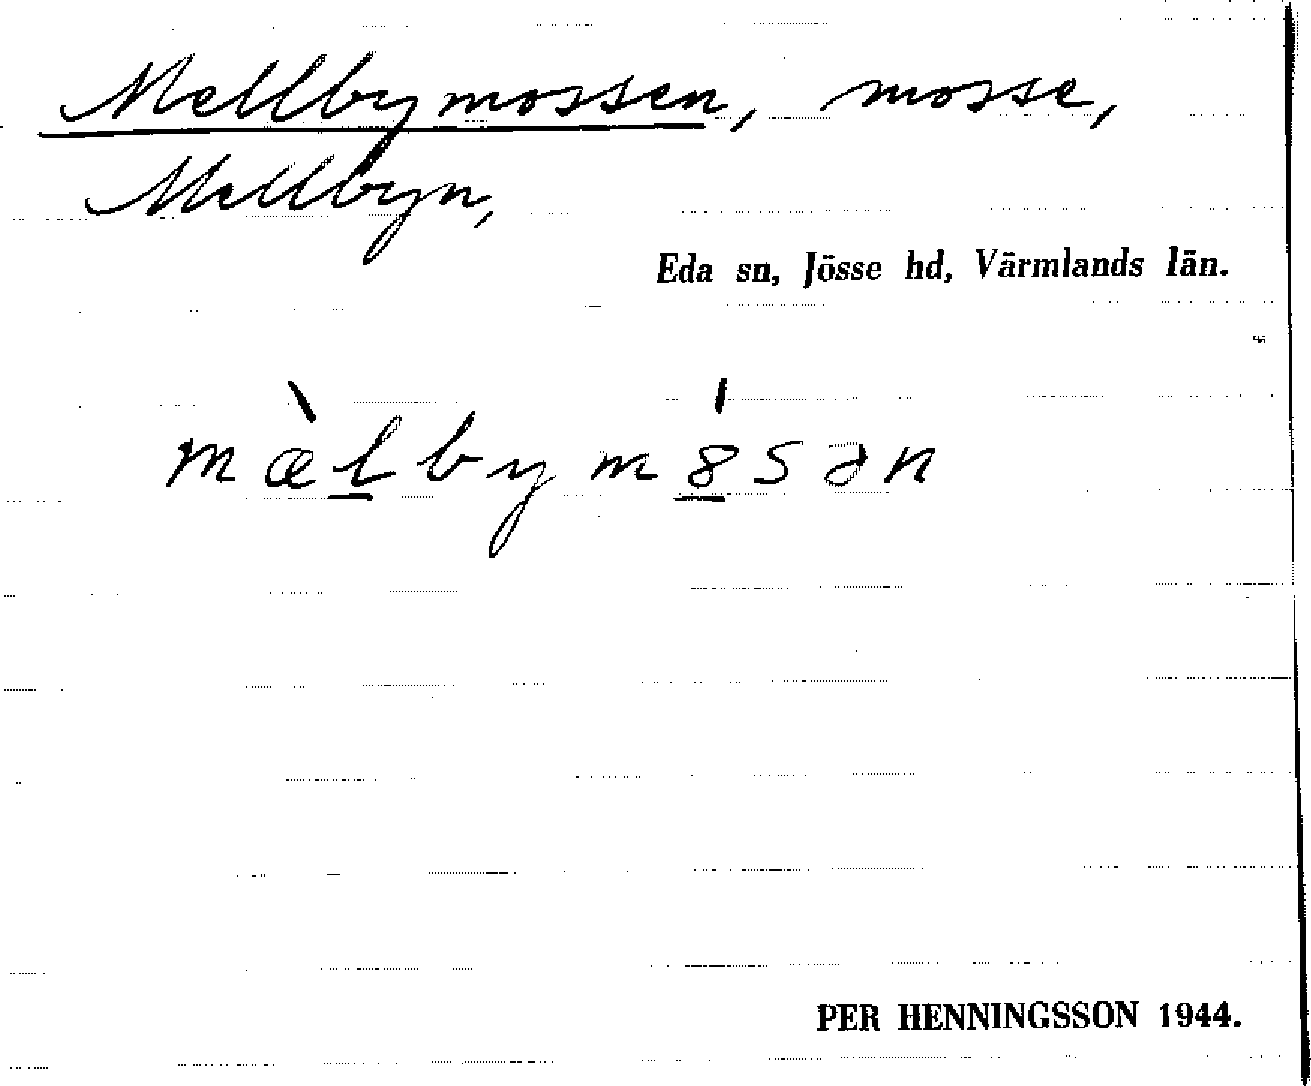 Mellbymossen, mosse,
Mellbyn,
Eda sn, Jösse hd, Värmlands län.
mæ̀l̲bym8̲́sən
PER HENNINGSSON 1944.